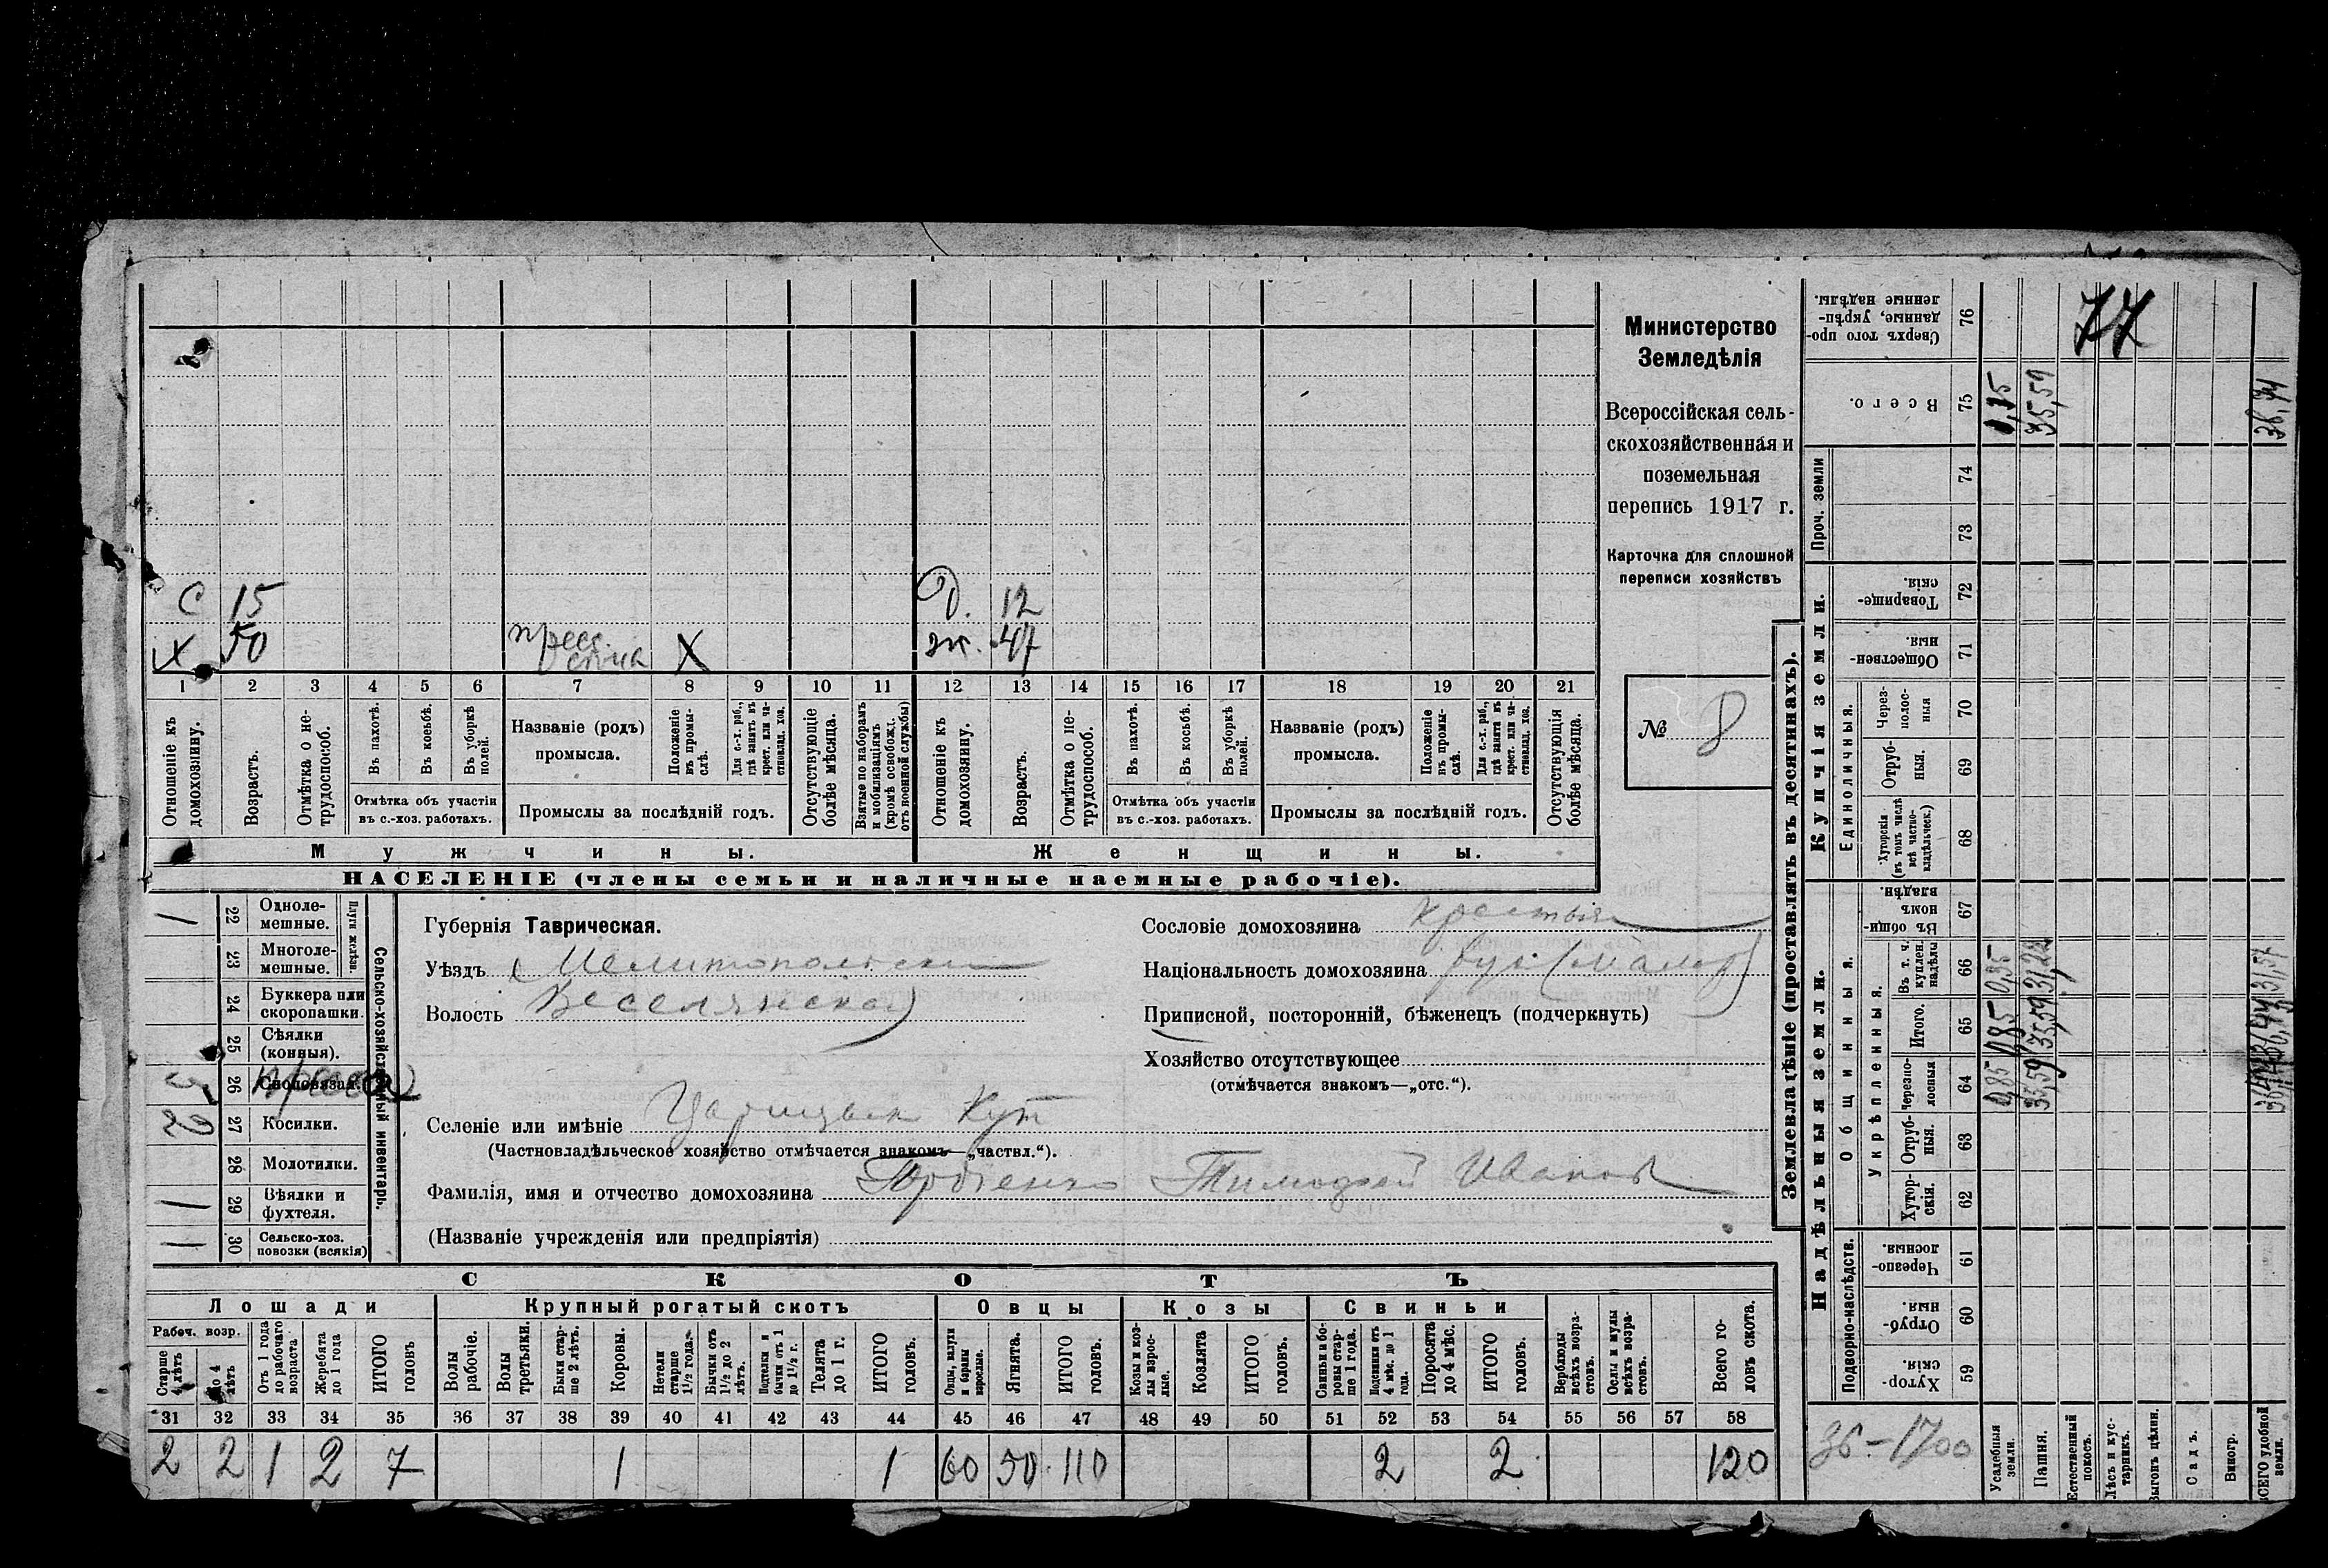 С 15 Д. 12
Х 50 Х ж. 47
1 2 3 4 5 6 7 8 9 10 11 12 13 14 15 16 17 18 19 20 21
Отношеніе къ домохозяину.
Возрастъ.
Отмѣтка о нетрудоспособ.
Въ пахотѣ.
Въ косьбѣ.
Въ уборкѣ полей.
Отмѣтка объ участіи
въ с.-хоз. работахъ.
Названіе (родъ)
промысла.
Положеніе въ промыслѣ.
Для с.-х. раб., гдѣ занятъ въ крест. или частновлад. хоз.
Промыслы за послѣдній годъ.
Отсутствующіе болѣе мѣсяца.
Взятые по наборамъ и мобилизаціямъ (кромѣ освобожд. отъ военной службы)
Отношеніе къ домохозяину.
Возрастъ.
Отмѣтка о нетрудоспособ.
Въ пахотѣ.
Въ косьбѣ.
Въ уборкѣ полей.
Отмѣтка объ участіи
въ с.-хоз. работахъ.
Названіе (родъ)
промысла.
Положеніе въ промыслѣ.
Для с.-х. раб., гдѣ занятъ въ крест. или частновлад. хоз.
Промыслы за послѣдній годъ.
Отсутствующія болѣе мѣсяца.
Мужчины. Женщины.
НАСЕЛЕНІЕ (члены семьи и наличные наемные рабочіе).
Министерство
Земледѣлія
Всероссійская сель-
скохозяйственная и
поземельная
перепись 1917 г.
Карточка для сплошной
переписи хозяйствъ
№ 8
Сельско-хозяйственный инвентарь.
Плуги желѣзн.
1 22 Одноле-
мешные.
23 Многоле-
мешные.
24 Буккера или
скоропашки.
25 Сѣялки
(конныя).
26 Сноповязал.
27 Косилки.
28 Молотилки.
1 29 Вѣялки и
фухтеля.
1 30 Сельско-хоз.
повозки (всякія)
Губернія Таврическая.
Уѣздъ Мелитопольскій
Волость Веселянская
Селеніе или имѣніе Царицынъ Кутъ
(Частновладѣльческое хозяйство отмѣчается знакомъ—„частвл.“).
Фамилія, имя и отчество домохозяина Тимофей Иванов
(Названіе учрежденія или предпріятія)
Сословіе домохозяина крестьян
Національность домохозяина рус. (малор)
Приписной, посторонній, бѣженецъ (подчеркнуть)
Хозяйство отсутствующее
(отмѣчается знакомъ—„отс.“).
СКОТЪ
Лошади Крупный рогатый скотъ Овцы Козы Свиньи
Рабоч. возр.
Старше 4 лѣтъ
До 4 лѣтъ
Отъ 1 года до рабочаго возраста
Жеребята до 1 года
ИТОГО головъ
Волы рабочіе.
Волы третьяки.
Быки старше 2 лѣтъ.
Коровы.
Нетели старше 1 1/2 года.
Бычки отъ 1 1/2 до 2 лѣтъ.
Подтелки и бычки отъ 1 до 1 1/2 г.
Телята до 1 г.
ИТОГО головъ.
Овцы, валухи и бараны взрослые.
Ягнята.
ИТОГО головъ.
Козы и козлы взрослые.
Козлята
ИТОГО головъ.
Свиньи и боровы старше 1 года.
Подсвинки отъ 4 мѣс. до 1 года.
Поросята до 4 мѣс.
ИТОГО головъ.
Верблюды всѣхъ возрастовъ.
Ослы и мулы всѣхъ возрастовъ.
Всего головъ скота.
31 32 33 34 35 36 37 38 39 40 41 42 43 44 45 46 47 48 49 50 51 52 53 54 55 56 57 58
2 2 1 2 7 1 1 60 50 110 2 2 120
Землевладѣніе (проставлять въ десятинахъ).
Купчія земли.
Надѣльныя земли.
Сверхъ того проданные, укрѣпленные надѣлы. 76
77
Всего. 75 35,59
Проч. земли 74
73
Товарищескія. 72
Общественныя. 71
Единоличныя.
Черезполосныя 70
Отрубныя. 69
Хуторскія (въ томъ числѣ всѣ частновладѣльческ.) 68
Общинныя.
Въ общинномъ владѣн. 67
Укрѣпленныя.
Въ т. ч. куплен. надѣлы 66
Итого. 65
Черезполосныя 64
Отрубныя. 63
Хуторскія. 62
Подворно-наслѣдств.
Черезполосныя. 61
Отрубныя. 60
Хуторскія. 59
36-1700
Усадебныя земли.
Пашня.
Естественный покосъ.
Лѣсъ и кустарникъ.
Выгонъ цѣлин.
Садъ.
Виногр.
ВСЕГО удобной земли.